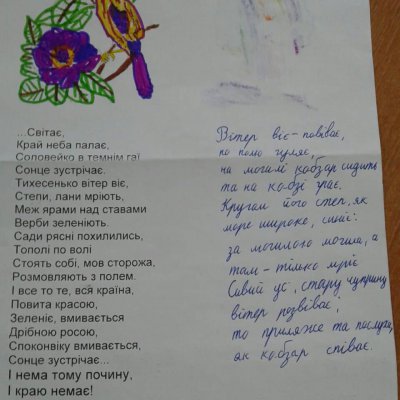 ...Світає,
Край неба палає,
Соловейко в темнім гаї
Сонце зустрічає.
Тихесенько вітер віє,
Степи, лани мріють,
Меж ярами над ставами
Верби зеленіють.
Сади рясні похилились,
Тополі по волі
Стоять собі, мов сторожа,
Розмовляють з полем.
І все то те, вся країна,
Повита красою,
Зеленіє, вмивається
Дрібною росою,
Споконвіку вмивається,
Сонце зустрічає...
І нема тому почину,
І краю немає!
Вітер віє-повіває,
по полю гуляє,
на могилі кобзар сидить
та на кобзі грає.
Кругом його степ, як
море широке, синіє:
за могилою могила, а
там - тілько мріє
Сивий ус, стару чуприну
вітер розвіває;
то приляже та послуха,
як кобзар співає.